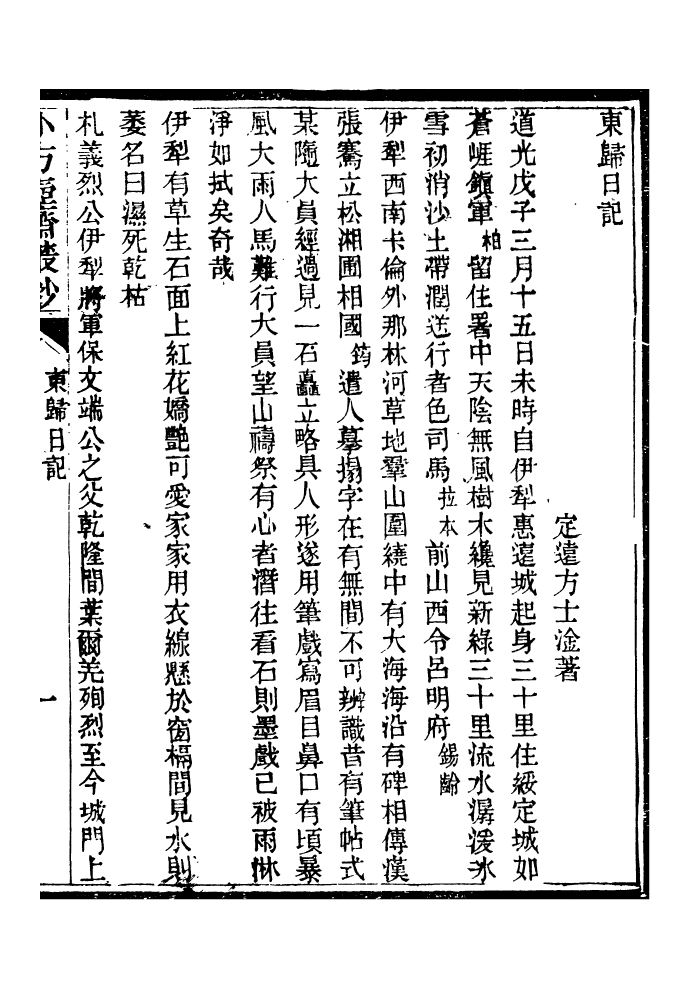 東歸日記
定遠方士淦著
道光戊子三月十五日未時自伊犁惠遠城起身三十里住綏定城如
蒼崕鎮軍柏留住署中天陰無風樹木纔見新綠三十里流水潺湲氷
雪初消沙土帶潤送行者色司馬拉本前山西令呂明府錫齡
伊犁西南卡倫外那林河草地羣山圍繞中有大海海沿有碑相傳漢
張騫立松湘圃相國筠遣人摹搨字在有無間不可辨識昔有筆帖式
某隨大員經過見一石矗立略具人形遂用筆戲寫眉目鼻口有頃暴
風大雨人馬難行大員望山禱祭有心者潛往看石則墨戲已被雨淋
淨如拭矣奇哉
伊犁有草生石面上紅花嬌艷可愛家家用衣線懸於窗槅間見水則
萎名曰濕死乾枯
札義烈公伊犁將軍保文端公之父乾隆間葉爾羌殉烈至今城門上
小方壺齋叢鈔
東歸日記
一